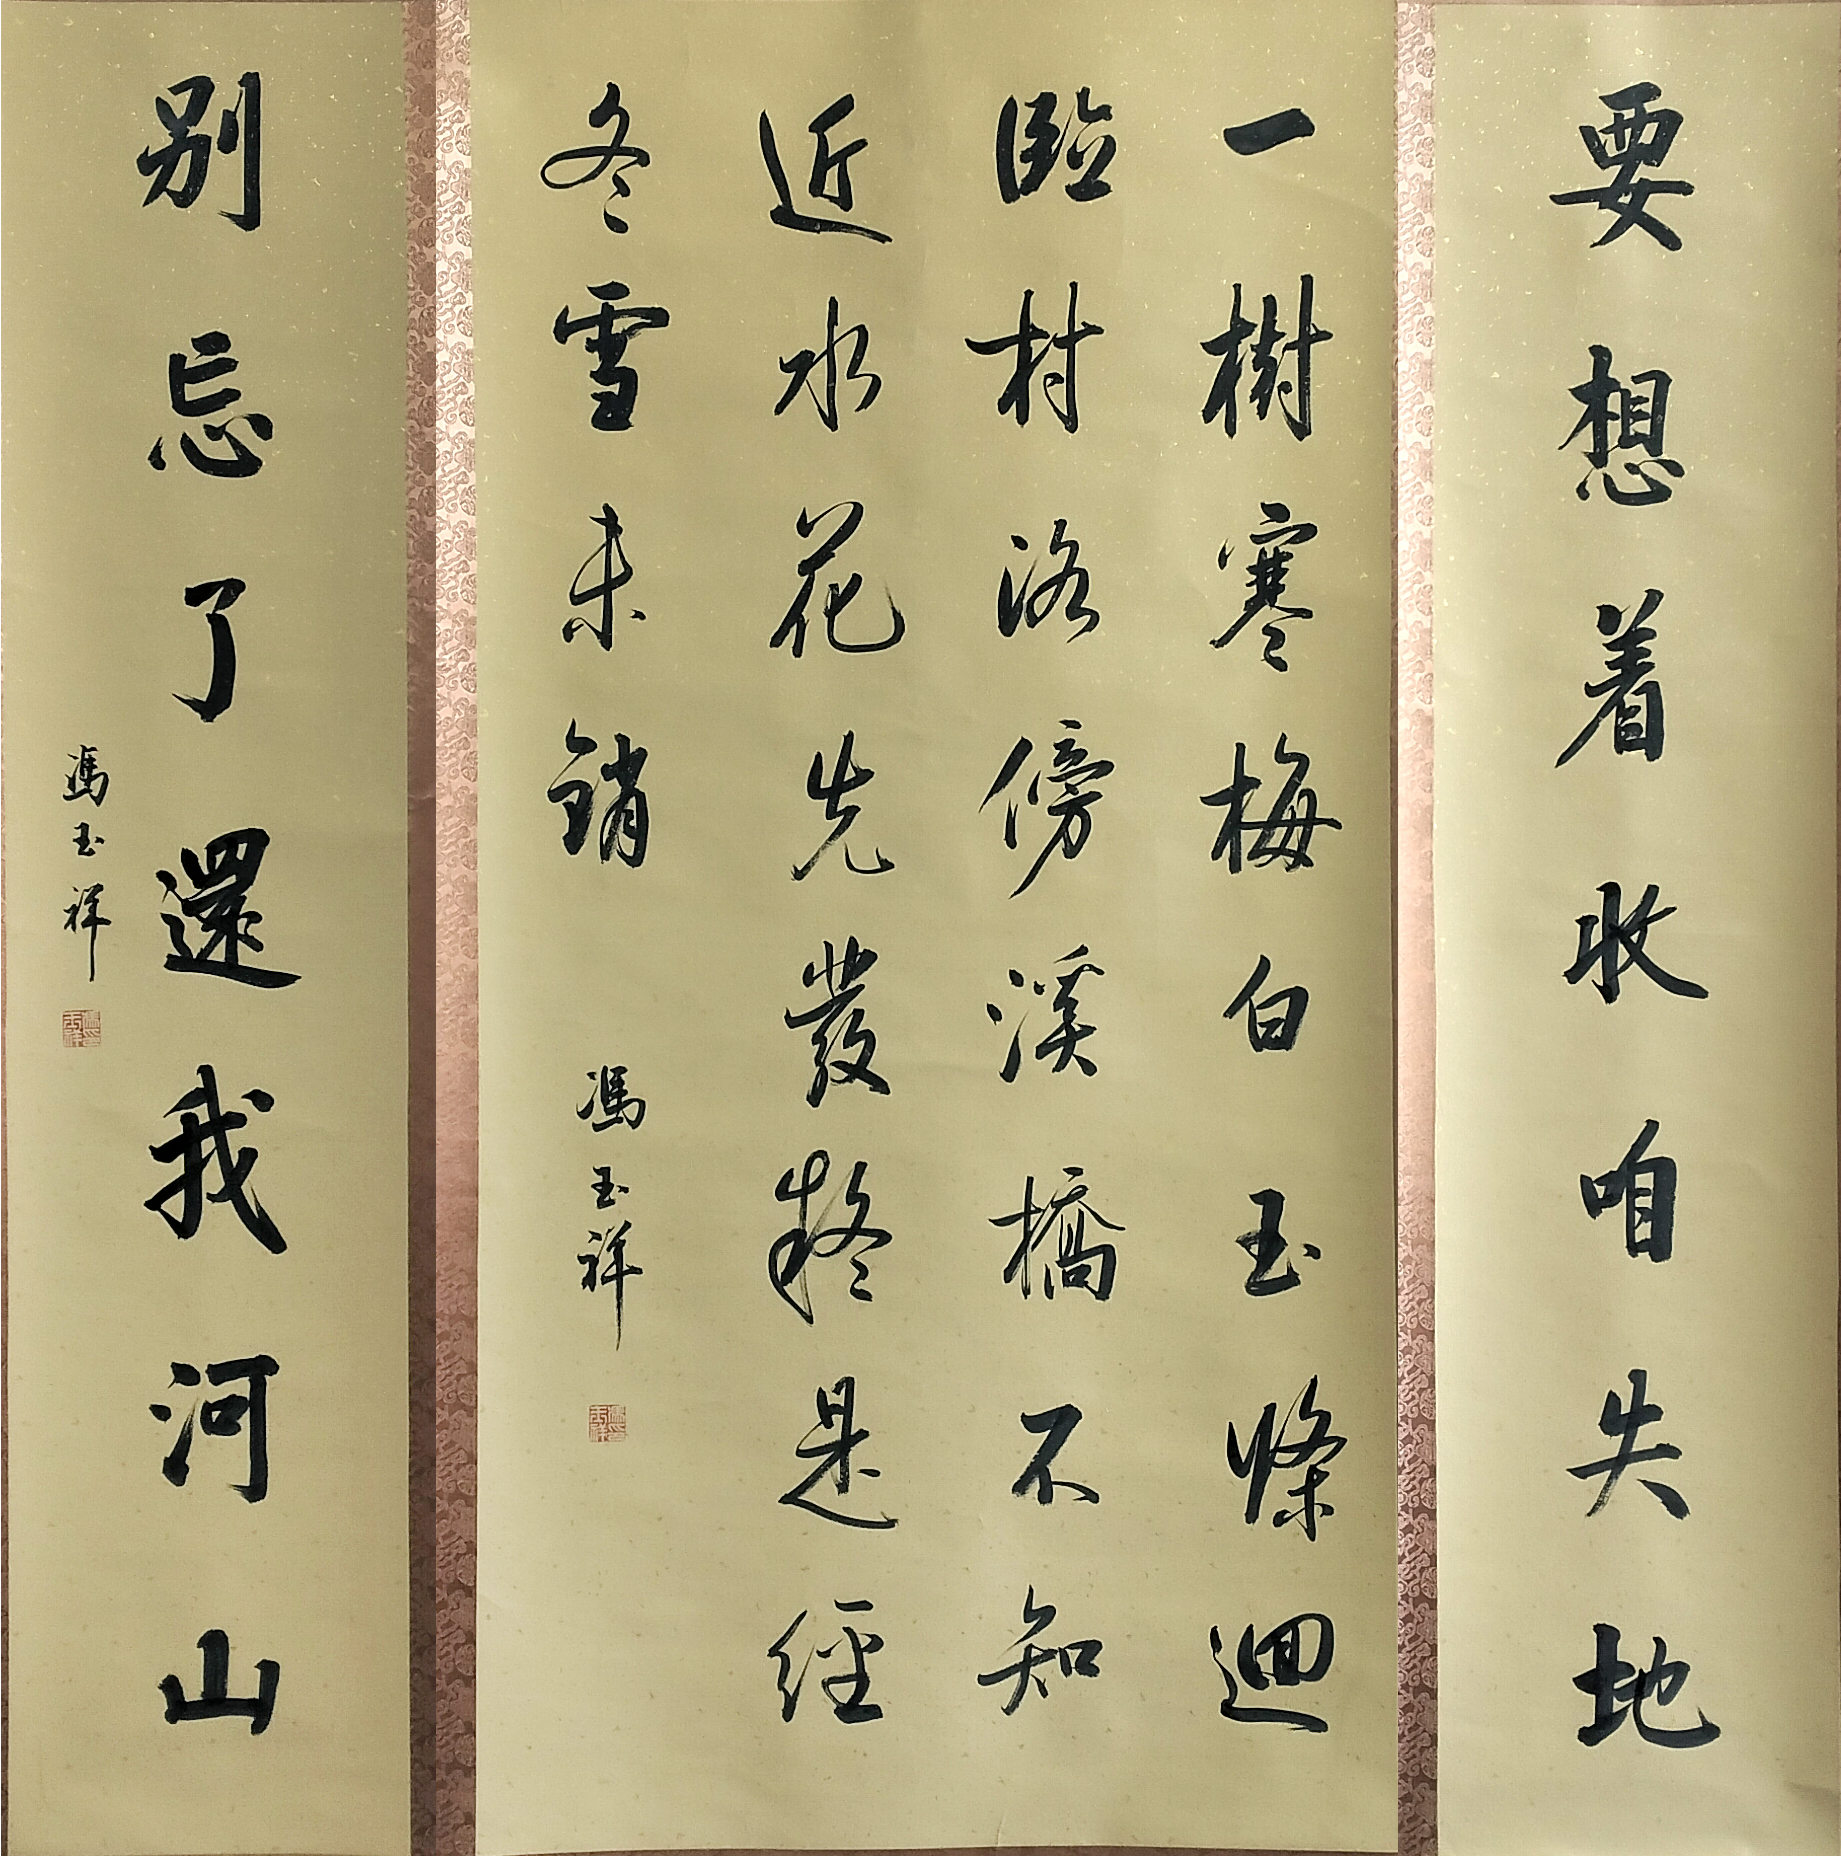 要想着收咱失地
一樹寒梅白玉條迴
臨村洛傍溪橋不知
近水花先發疑是經
冬雪未銷
馮玉祥
别忘了還我河山
馮玉祥